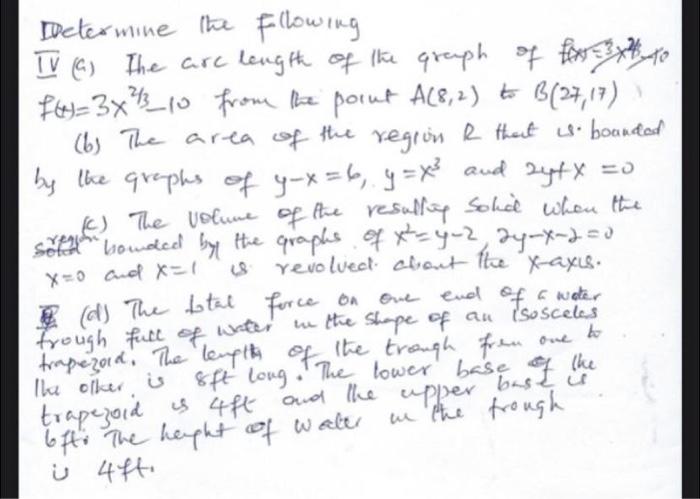 Determine the following
IV (a) The arc length of the graph of f(x)=3x^2/3-10
f(x)=3x^2/3-10 from the point A(8,2) to B(27,17)
(b) The area of the region R that is bounded
by the graphs of y-x=6, y=x^3 and 2y+x=0
(c) The volume of the resulting solid when the
region
solid bounded by the graphs of x^2=y-2, 2y-x-2=0
x=0 and x=1 is revolved about the x-axis.
(d) The total force on one end of a water
trough full of water in the shape of an isosceles
trapezoid. The length of the trough from one to
the other is 8ft long. The lower base of the
trapezoid is 4ft and the upper base is
6ft. The height of water in the trough
is 4ft.